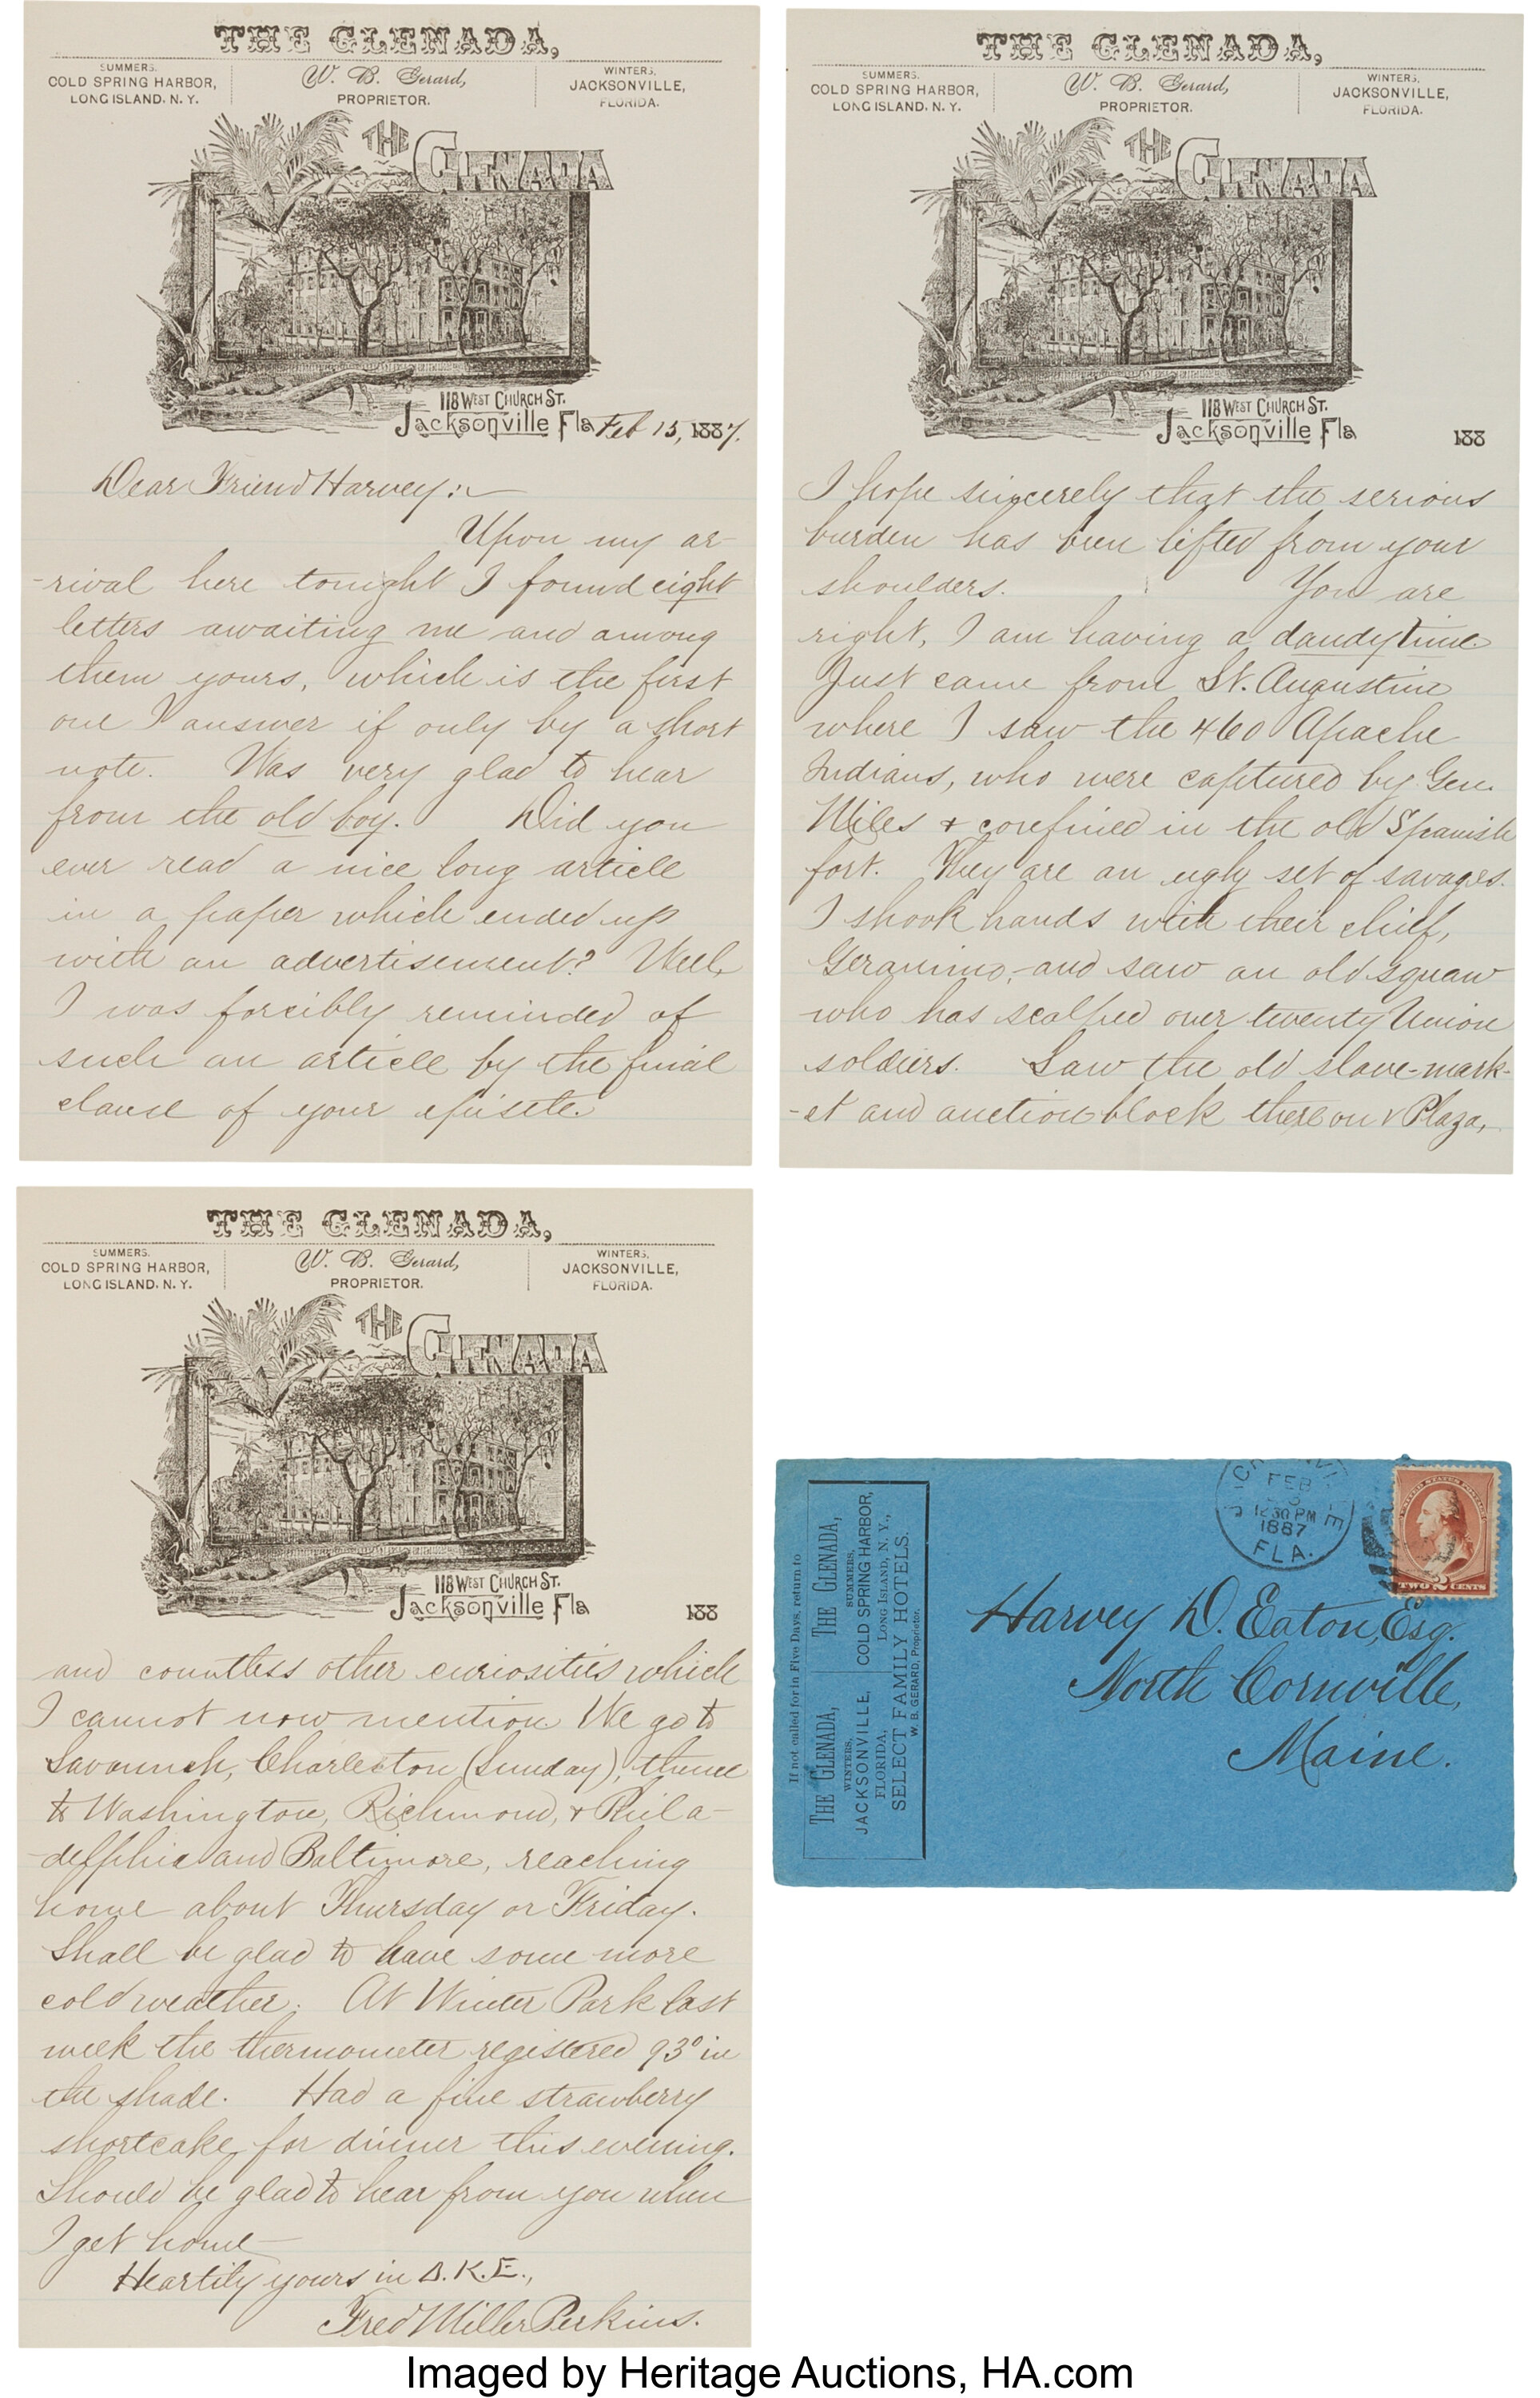 THE GLENADA,
SUMMERS.
COLD SPRING HARBOR,
LONG ISLAND, N. Y.
W. B. Gerard,
PROPRIETOR.
WINTERS,
JACKSONVILLE,
FLORIDA.
THE
GLENADA
118 WEST CHURCH ST.
Jacksonville Fla Feb 15, 1887.
Dear Friend Harvey:—
Upon my ar-
-rival here tonight I found eight
letters awaiting me and among
them yours, which is the first
one I answer if only by a short
note. Was very glad to hear
from the old boy. Did you
ever read a nice long article
in a paper which ended up
with an advertisement? Well,
I was forcibly reminded of
such an article by the final
clause of your epistle.
THE GLENADA,
SUMMERS.
COLD SPRING HARBOR,
LONG ISLAND, N. Y.
W. B. Gerard,
PROPRIETOR.
WINTERS,
JACKSONVILLE,
FLORIDA.
THE
GLENADA
118 WEST CHURCH ST.
Jacksonville Fla 188
I hope sincerely that the serious
burden has been lifted from your
shoulders. You are
right, I am having a dandy time.
Just came from St. Augustine
where I saw the 460 Apache
Indians, who were captured by Gen.
Miles & confined in the old Spanish
fort. They are an ugly set of savages.
I shook hands with their chief,
Geranimo, and saw an old squaw
who has scalped over twenty Union
soldiers. Saw the old slave-mark-
-et and auction block there on Plaza,
THE GLENADA,
SUMMERS.
COLD SPRING HARBOR,
LONG ISLAND, N. Y.
W. B. Gerard,
PROPRIETOR.
WINTERS,
JACKSONVILLE,
FLORIDA.
THE
GLENADA
118 WEST CHURCH ST.
Jacksonville Fla 188
and countless other curiosities which
I cannot now mention We go to
Savannah, Charleston (Sunday), thence
to Washington, Richmond, & Phila-
-delphia and Baltimore, reaching
home about Thursday or Friday.
Shall be glad to have some more
cold weather. At Winter Park last
week the thermometer registered 93° in
the shade. Had a fine strawberry
shortcake for dinner this evening.
Should be glad to hear from you when
I get home—
Heartily yours in Δ.K.E.,
Fred Miller Perkins.
If not called for in Five Days, return to
THE GLENADA,
WINTERS,
JACKSONVILLE,
FLORIDA,
THE GLENADA,
SUMMERS,
COLD SPRING HARBOR,
LONG ISLAND, N. Y.,
SELECT FAMILY HOTELS.
W. B. GERARD, Proprietor.
FEB
12 30 PM
1887
FLA.
UNITED STATES POSTAGE
TWO 2 CENTS
Harvey D. Eaton, Esq.
North Cornville,
Maine.
Imaged by Heritage Auctions, HA.com